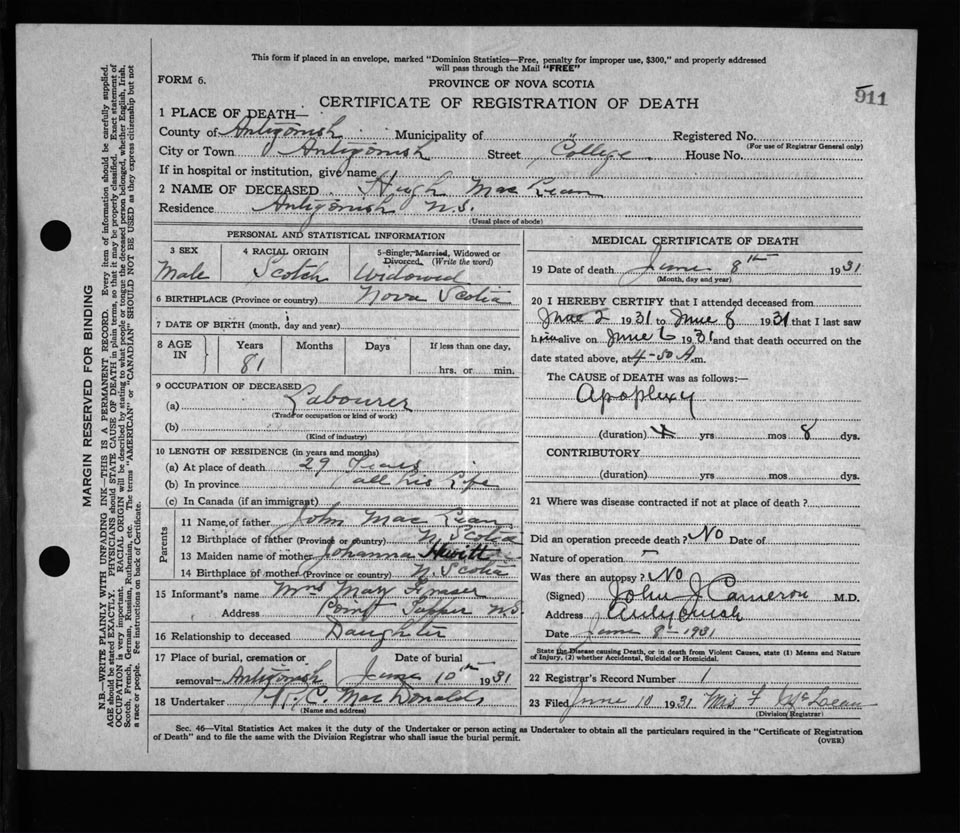 This form if placed in an envelope, marked "Dominion Statistics—Free, penalty for improper use, $300," and properly addressed
will pass through the Mail "FREE"
FORM 6.
PROVINCE OF NOVA SCOTIA
911
CERTIFICATE OF REGISTRATION OF DEATH
1 PLACE OF DEATH—
County of Antigonish Municipality of Registered No.
(For use of Registrar General only)
City or Town Antigonish Street College House No.
If in hospital or institution, give name
2 NAME OF DECEASED Hugh MacLean
Residence Antigonish N.S.
(Usual place of abode)
PERSONAL AND STATISTICAL INFORMATION
3 SEX 4 RACIAL ORIGIN 5-Single, Married, Widowed or
Divorced (Write the word)
Male Scotch Widowed
6 BIRTHPLACE (Province or country) Nova Scotia
7 DATE OF BIRTH (month, day and year)
8 AGE IN Years Months Days If less than one day,
81 hrs. or min.
9 OCCUPATION OF DECEASED
(a) Labourer
(Trade or occupation or kind of work)
(b)
(Kind of industry)
10 LENGTH OF RESIDENCE (in years and months)
(a) At place of death 29 Years
(b) In province all his life
(c) In Canada (if an immigrant)
Parents
11 Name of father John MacLean
12 Birthplace of father (Province or country) N. Scotia
13 Maiden name of mother Johanna Hewitt
14 Birthplace of mother (Province or country) N. Scotia
15 Informant's name Mrs Mary Fraser
Address Point Tupper N.S.
16 Relationship to deceased Daughter
17 Place of burial, cremation or Date of burial
removal— Antigonish June 10th 1931
18 Undertaker C. MacDonald
(Name and address)
MEDICAL CERTIFICATE OF DEATH
19 Date of death June 8th 1931
(Month, day and year)
20 I HEREBY CERTIFY that I attended deceased from
June 2 1931 to June 8 1931 that I last saw
him alive on June 6 1931 and that death occurred on the
date stated above, at 4-50 A.m.
The CAUSE OF DEATH was as follows:—
Apoplexy
(duration) yrs mos 8 dys.
CONTRIBUTORY
(duration) yrs mos dys.
21 Where was disease contracted if not at place of death?
Did an operation precede death? No Date of
Nature of operation
Was there an autopsy? No
(Signed) John J Cameron M.D.
Address Antigonish
Date June 8th 1931
State the Disease causing Death, or in death from Violent Causes, state (1) Means and Nature
of Injury, (2) whether Accidental, Suicidal or Homicidal.
22 Registrar's Record Number 1
23 Filed June 10 1931 Mrs F McLean
(Division Registrar)
Sec. 46—Vital Statistics Act makes it the duty of the Undertaker or person acting as Undertaker to obtain all the particulars required in the "Certificate of Registration
of Death" and to file the same with the Division Registrar who shall issue the burial permit.
(OVER)
MARGIN RESERVED FOR BINDING
N.B.—WRITE PLAINLY WITH UNFADING INK—THIS IS A PERMANENT RECORD. Every item of information should be carefully supplied.
AGE should be stated EXACTLY. PHYSICIANS should STATE CAUSE OF DEATH in plain terms, so that it may be properly classified. Exact statement of
OCCUPATION is very important. RACIAL ORIGIN will be described by stating to what people or tongue the deceased person belonged, whether English, Irish,
Scotch, French, German, Russian, Ruthenian, etc. The terms "AMERICAN" or "CANADIAN" SHOULD NOT BE USED as they express citizenship but not
a race or people. Fee instructions on back of Certificate.